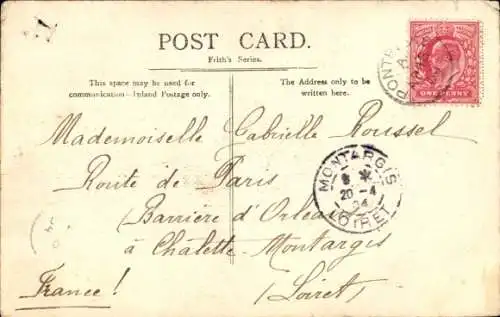 POST CARD.
Frith's Series.
This space may be used for
communication—Inland Postage only.
The Address only to be
written here.
ONE PENNY
Mademoiselle Gabrielle Roussel
Route de Paris
(Barrière d'Orléans
à Châlette-Montargis
(Loiret)
France!
MONTARGIS
20 - 4
04
LOIRET